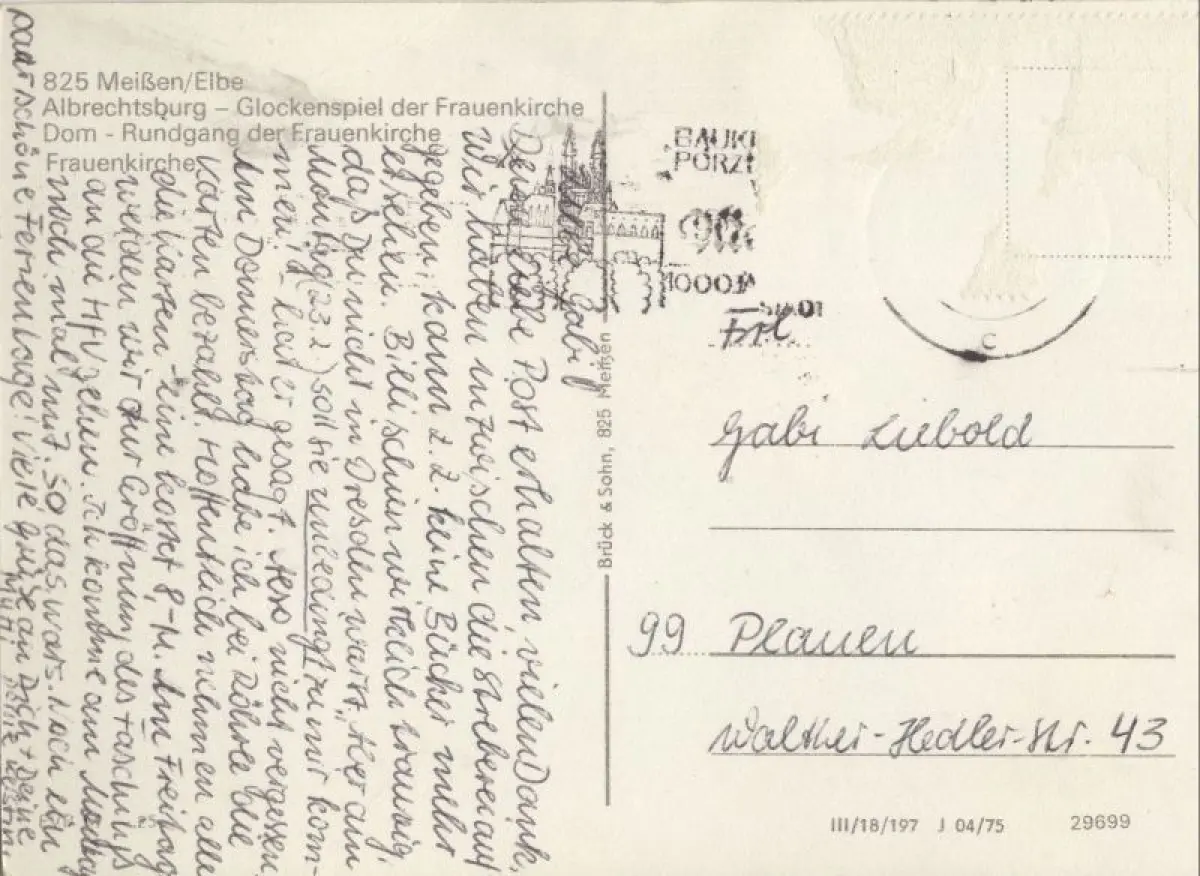 825 Meißen/Elbe
Albrechtsburg – Glockenspiel der Frauenkirche
Dom - Rundgang der Frauenkirche
Frauenkirche
Liebe Gabi!
Deine liebe Post erhalten, vielen Dank.
Wir haben inzwischen die Streberei auf
gegeben; kann z. Z. keine Bücher mehr
ersehen. Billi schien wirklich traurig,
daß Du nicht in Dresden warst. "Aber am
Montag (23.2.) soll sie unbedingt zu mir kom-
men!" hat er gesagt. Also nicht vergessen.
Am Donnerstag habe ich bei Döhrle die
Karten bezahlt. Hoffentlich nehmen alle
die Karten - eine kostet 8,- M. Am Freitag
werden wir zur Eröffnung des Faschings
an die HfV gehen. Ich komme am Montag
noch mal mit. So das wars. Noch ein
paar schöne Ferientage! Viele Grüße an Dich + Deine
Mutti
BAUKU
PORZE
1000 JA
STADT
C
Brück & Sohn, 825 Meißen
Frl.
Gabi Liebold
99 Plauen
Walther-Hedler-Str. 43
III/18/197 J 04/75 29699